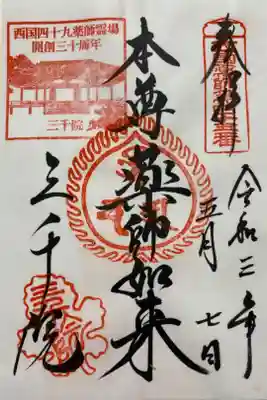 奉拝
令和三年
五月七日
本尊薬師如来
三千院
西国四十九薬師霊場
開創三十周年
三千院